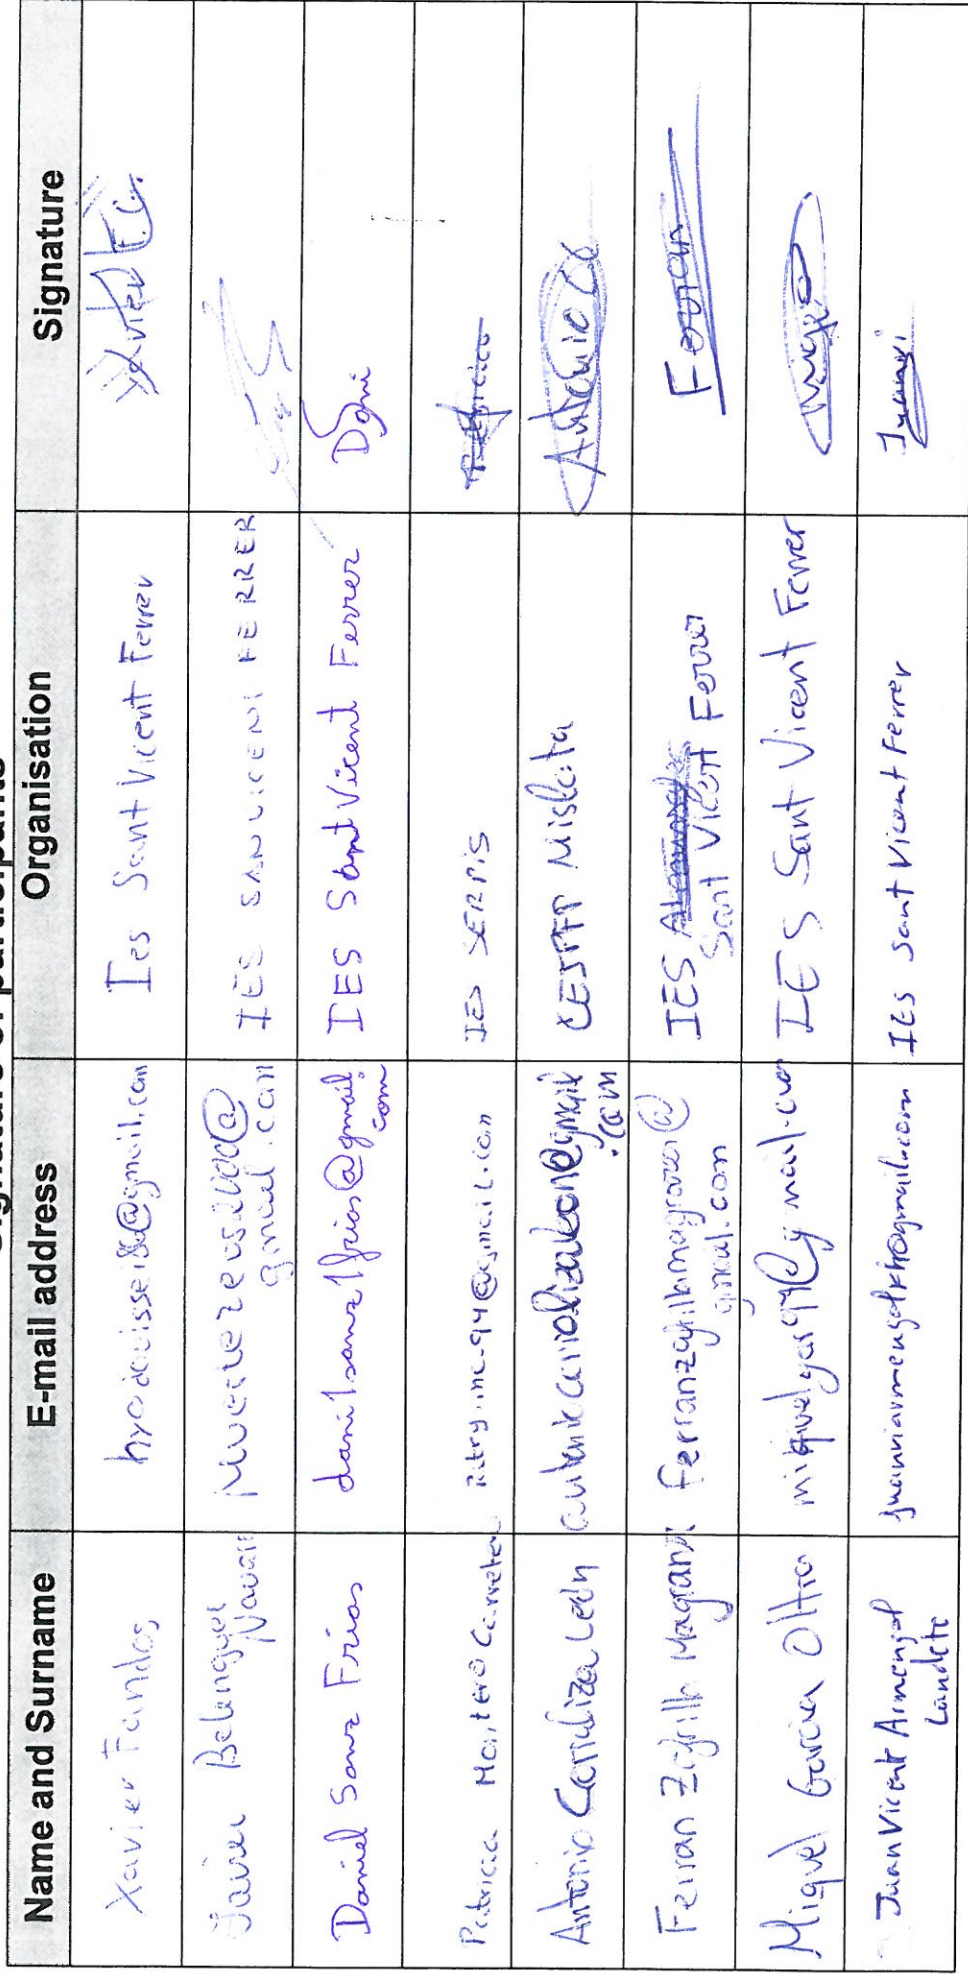 Signature of participants
Name and Surname E-mail address Organisation Signature
Xavier Fandos Ies Sant Vicent Ferrer
Javier Belenguer
Navarro
gmail.com
IES SANT VICENT FERRER
Daniel Sanz Frias dani1sanz1frias@gmail.
com
IES Sant Vicent Ferrer Dani
Patricia Montero Carretero IES SERPIS Patricia
Antonio Carioliza León CEIPFP Mislata Antonio
.com
Ferran Zafrilla Magraner ferranzafrillamagraner@
gmail.com
IES
Sant Vicent Ferrer
Ferran
Miguel Garcia Oltra IES Sant Vicent Ferrer Miguel
Juan Vicent Armengol
Landete
juanviarmengolkh@gmail.com IES Sant Vicent Ferrer Juanvi